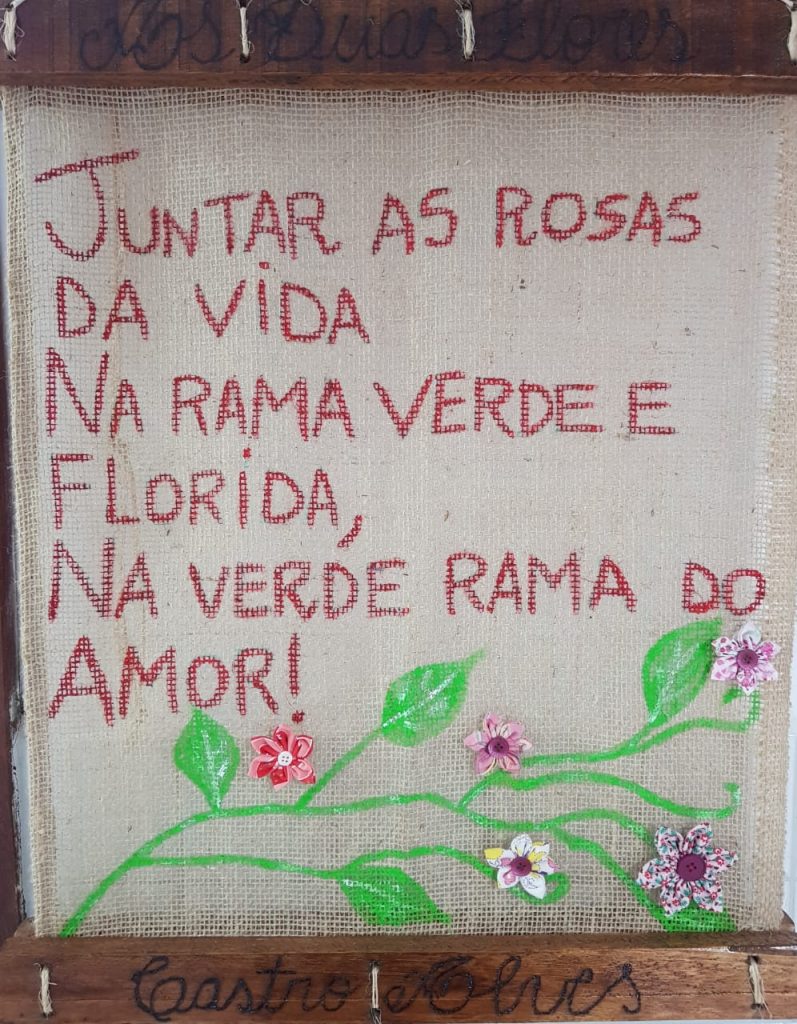 As Duas Flores
JUNTAR AS ROSAS
DA VIDA
NA RAMA VERDE E
FLORIDA,
NA VERDE RAMA DO
AMOR!
Castro Alves